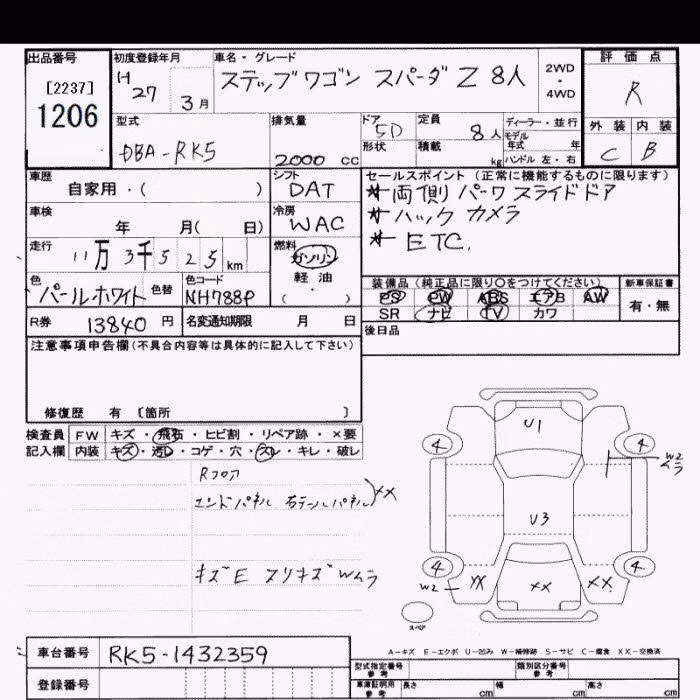 出品番号
[2237]
1206
初度登録年月
H27 3月
車名・グレード
ステップワゴン スパーダ Z 8人
2WD
・
4WD
評価点
R
外装 内装
C B
型式
DBA-RK5
排気量
2000 cc
ドア 5D
形状
定員 8人
積載 kg
ディーラー・並行
モデル
年式 年
ハンドル 左・右
車歴
自家用・( )
シフト
DAT
セールスポイント (正常に機能するものに限ります)
* 両側 パーワスライドドア
* バックカメラ
* ETC.
車検
年 月( 日)
冷房
WAC
走行
11万3千525km
燃料
ガソリン
軽油
( ・ )
色
パールホワイト
色替
色コード
NH788P
装備品 (純正品に限り○をつけてください)
PS PW ABS エアB AW
SR ナビ TV カワ
新車保証書
有・無
R券 13840 円
名変通知期限 月 日
後日品
注意事項申告欄 (不具合内容等は具体的に記入して下さい)
修復歴 有 〔箇所 〕
検査員
記入欄
FW キズ・飛石・ヒビ割・リペア跡・×要
内装 キズ・汚レ・コゲ・穴・スレ・キレ・破レ
Rフロア
エンドパネル 右テールパネル XX
キズE スリキズ Wムラ
U1
4
4
W2
ムラ
U3
4
4
W2
XX
XX
XX
スペア
A-キズ E-エクボ U-凹み W-補修跡 S-サビ C-腐食 XX-交換済
車台番号 RK5-1432359
登録番号
型式指定番号
参考
類別区分番号
参考
車庫証明用
参考
長さ cm
幅 cm
高さ cm